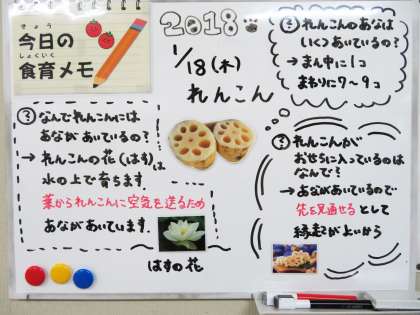 きょう
今日の
しょくいく
食育メモ
2018
1/18(木)
れんこん
? れんこんのあなは
いくつあいているの?
→ まん中に1コ
まわりに7〜9コ
? なんでれんこんには
あながあいているの?
→ れんこんの花(はす)は
水の上で育ちます。
葉かられんこんに空気を送るため
あながあいています。
はすの花
? れんこんが
おせちに入っているのは
なんで?
→ あながあいているので
先を見通せるとして
縁起が良いから